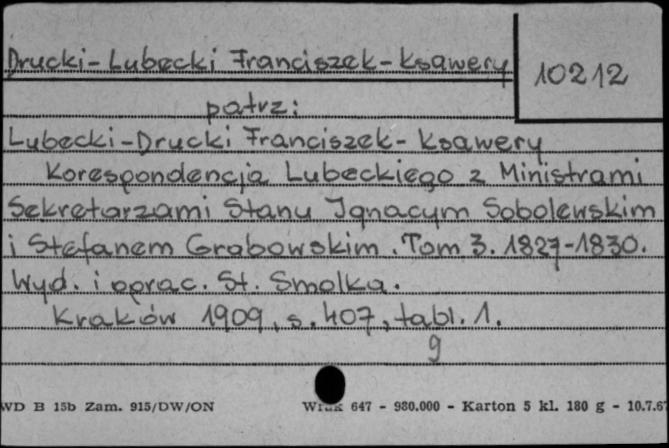 Drucki-Lubecki Franciszek-Ksawery
10212
patrz:
Lubecki-Drucki Franciszek-Ksawery
Korespondencja Lubeckiego z Ministrami
Sekretarzami Stanu Ignacym Sobolewskim
i Stefanem Grabowskim. Tom 3. 1827-1830.
Wyd. i oprac. St. Smolka.
Kraków 1909, s. 407, tabl. 1.
9
WD B 15b Zam. 915/DW/ON
647 - 980.000 - Karton 5 kl. 180 g - 10.7.67